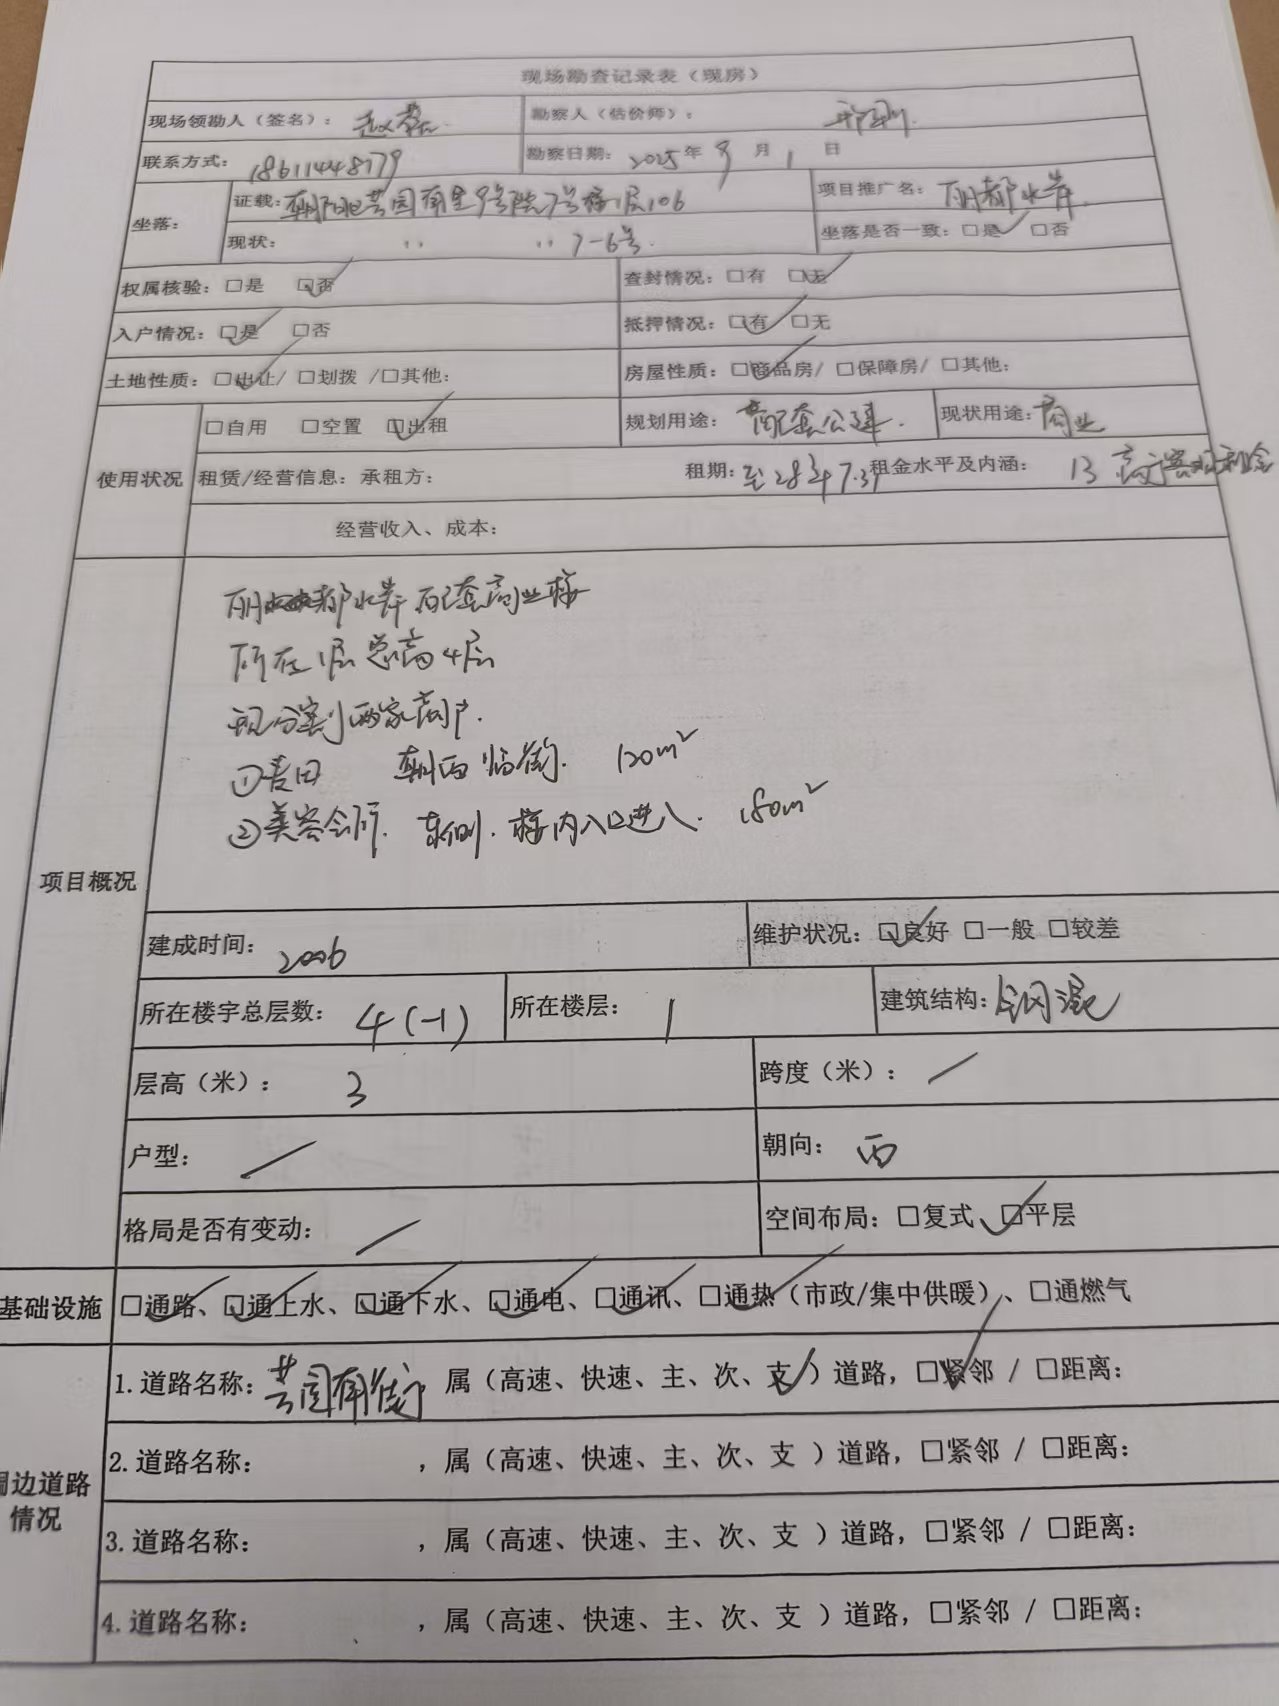 现场勘查记录表（现房）
现场领勘人（签名）： 勘察人（估价师）：
联系方式：18611448779 勘察日期：2025年9月1日
坐落： 证载：朝阳区芳园南里9号院7号楼1层106 项目推广名：丽都水岸
现状： 〃 〃 7-6号. 坐落是否一致：□是✓ □否
权属核验：□是 □否✓ 查封情况：□有 □无✓
入户情况：□是✓ □否 抵押情况：□有✓ □无
土地性质：□出让✓/ □划拨 /□其他： 房屋性质：□商品房✓/ □保障房/ □其他：
使用状况 □自用 □空置 □出租✓ 规划用途：配套公建. 现状用途：商业
租赁/经营信息：承租方： 租期：至28年7.31 租金水平及内涵：13
经营收入、成本：
项目概况
丽都水岸配套商业楼
所在1层总高4层
现分割两家商户.
①麦田 朝西临街. 120m²
②美容会所. 东侧. 楼内入口进入. 180m²
建成时间：2006 维护状况：□良好✓ □一般 □较差
所在楼宇总层数：4(-1) 所在楼层：1 建筑结构：钢混
层高（米）：3 跨度（米）：/
户型：/ 朝向：西
格局是否有变动：/ 空间布局：□复式 □平层✓
基础设施 □通路✓、□通上水✓、□通下水✓、□通电✓、□通讯✓、□通热✓（市政/集中供暖）、□通燃气
周边道路情况
1.道路名称：芳园南街，属（高速、快速、主、次、支✓）道路，□紧邻✓ / □距离：
2.道路名称： ，属（高速、快速、主、次、支 ）道路，□紧邻 / □距离：
3.道路名称： ，属（高速、快速、主、次、支 ）道路，□紧邻 / □距离：
4.道路名称： ，属（高速、快速、主、次、支 ）道路，□紧邻 / □距离：